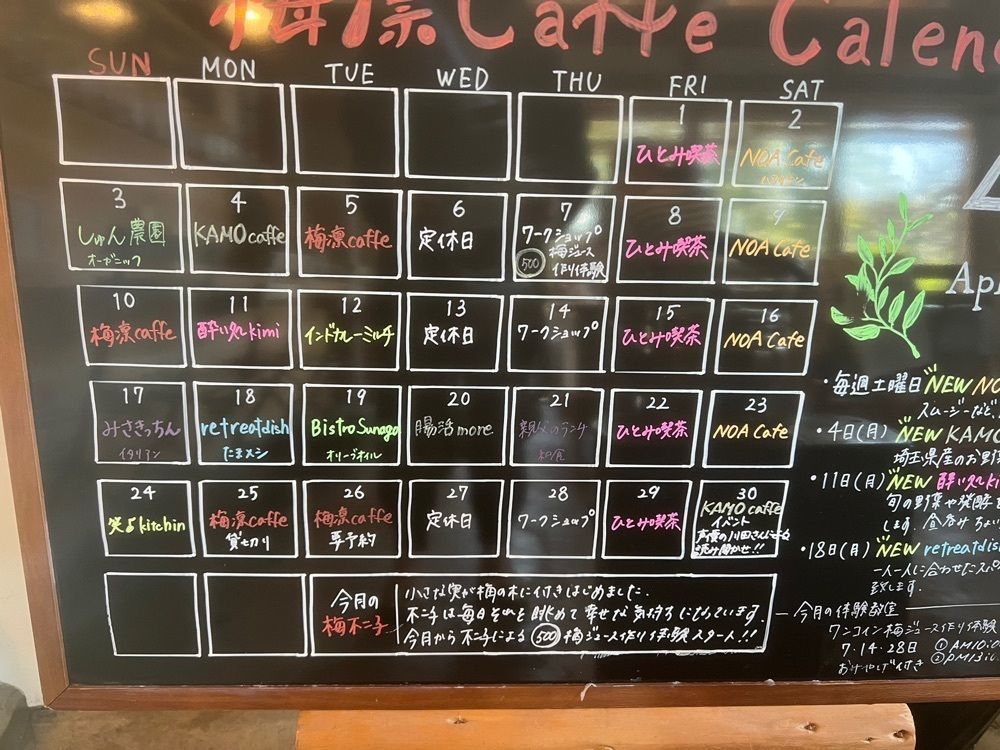 梅凛Caffe Calen
SUN MON TUE WED THU FRI SAT
1
ひとみ喫茶
2
NOA Cafe
3
しゅん農園
オーガニック
4
KAMO caffe
5
梅凛caffe
6
定休日
7
ワークショップ
500 梅ジュース
作り体験
8
ひとみ喫茶
9
NOA Cafe
10
梅凛caffe
11
酔い処kimi
12
インドカレーミルチ
13
定休日
14
ワークショップ
15
ひとみ喫茶
16
NOA Cafe
17
みさきっちん
イタリアン
18
retreatdish
たまメシ
19
Bistro Sunaga
オリーブオイル
20
腸活more
21
親父のランチ
22
ひとみ喫茶
23
NOA Cafe
24
笑よkitchin
25
梅凛caffe
貸切り
26
梅凛caffe
要予約
27
定休日
28
ワークショップ
29
ひとみ喫茶
30
KAMO caffe
イベント
声優の川田さんによる
読み聞かせ!!
今月の
梅不二子
小さな実が梅の木に付きはじめました。
不二子は毎日それを眺めて幸せな気持ちになっています。
今月から不二子による 500 梅ジュース作り体験スタート!!
Ap
・毎週土曜日 NEW NO
スムージーなど
・4日(月) NEW KAMO
埼玉県産のお野
・11日(月) NEW 酔い処ki
旬の野菜や発酵を
します。
・18日(月) NEW retreatdish
一人一人に合わせたスパ
致します。
今月の体験教室
ワンコイン梅ジュース作り体験
7・14・28日 ①AM10:0
おみやげ付き ②PM13: